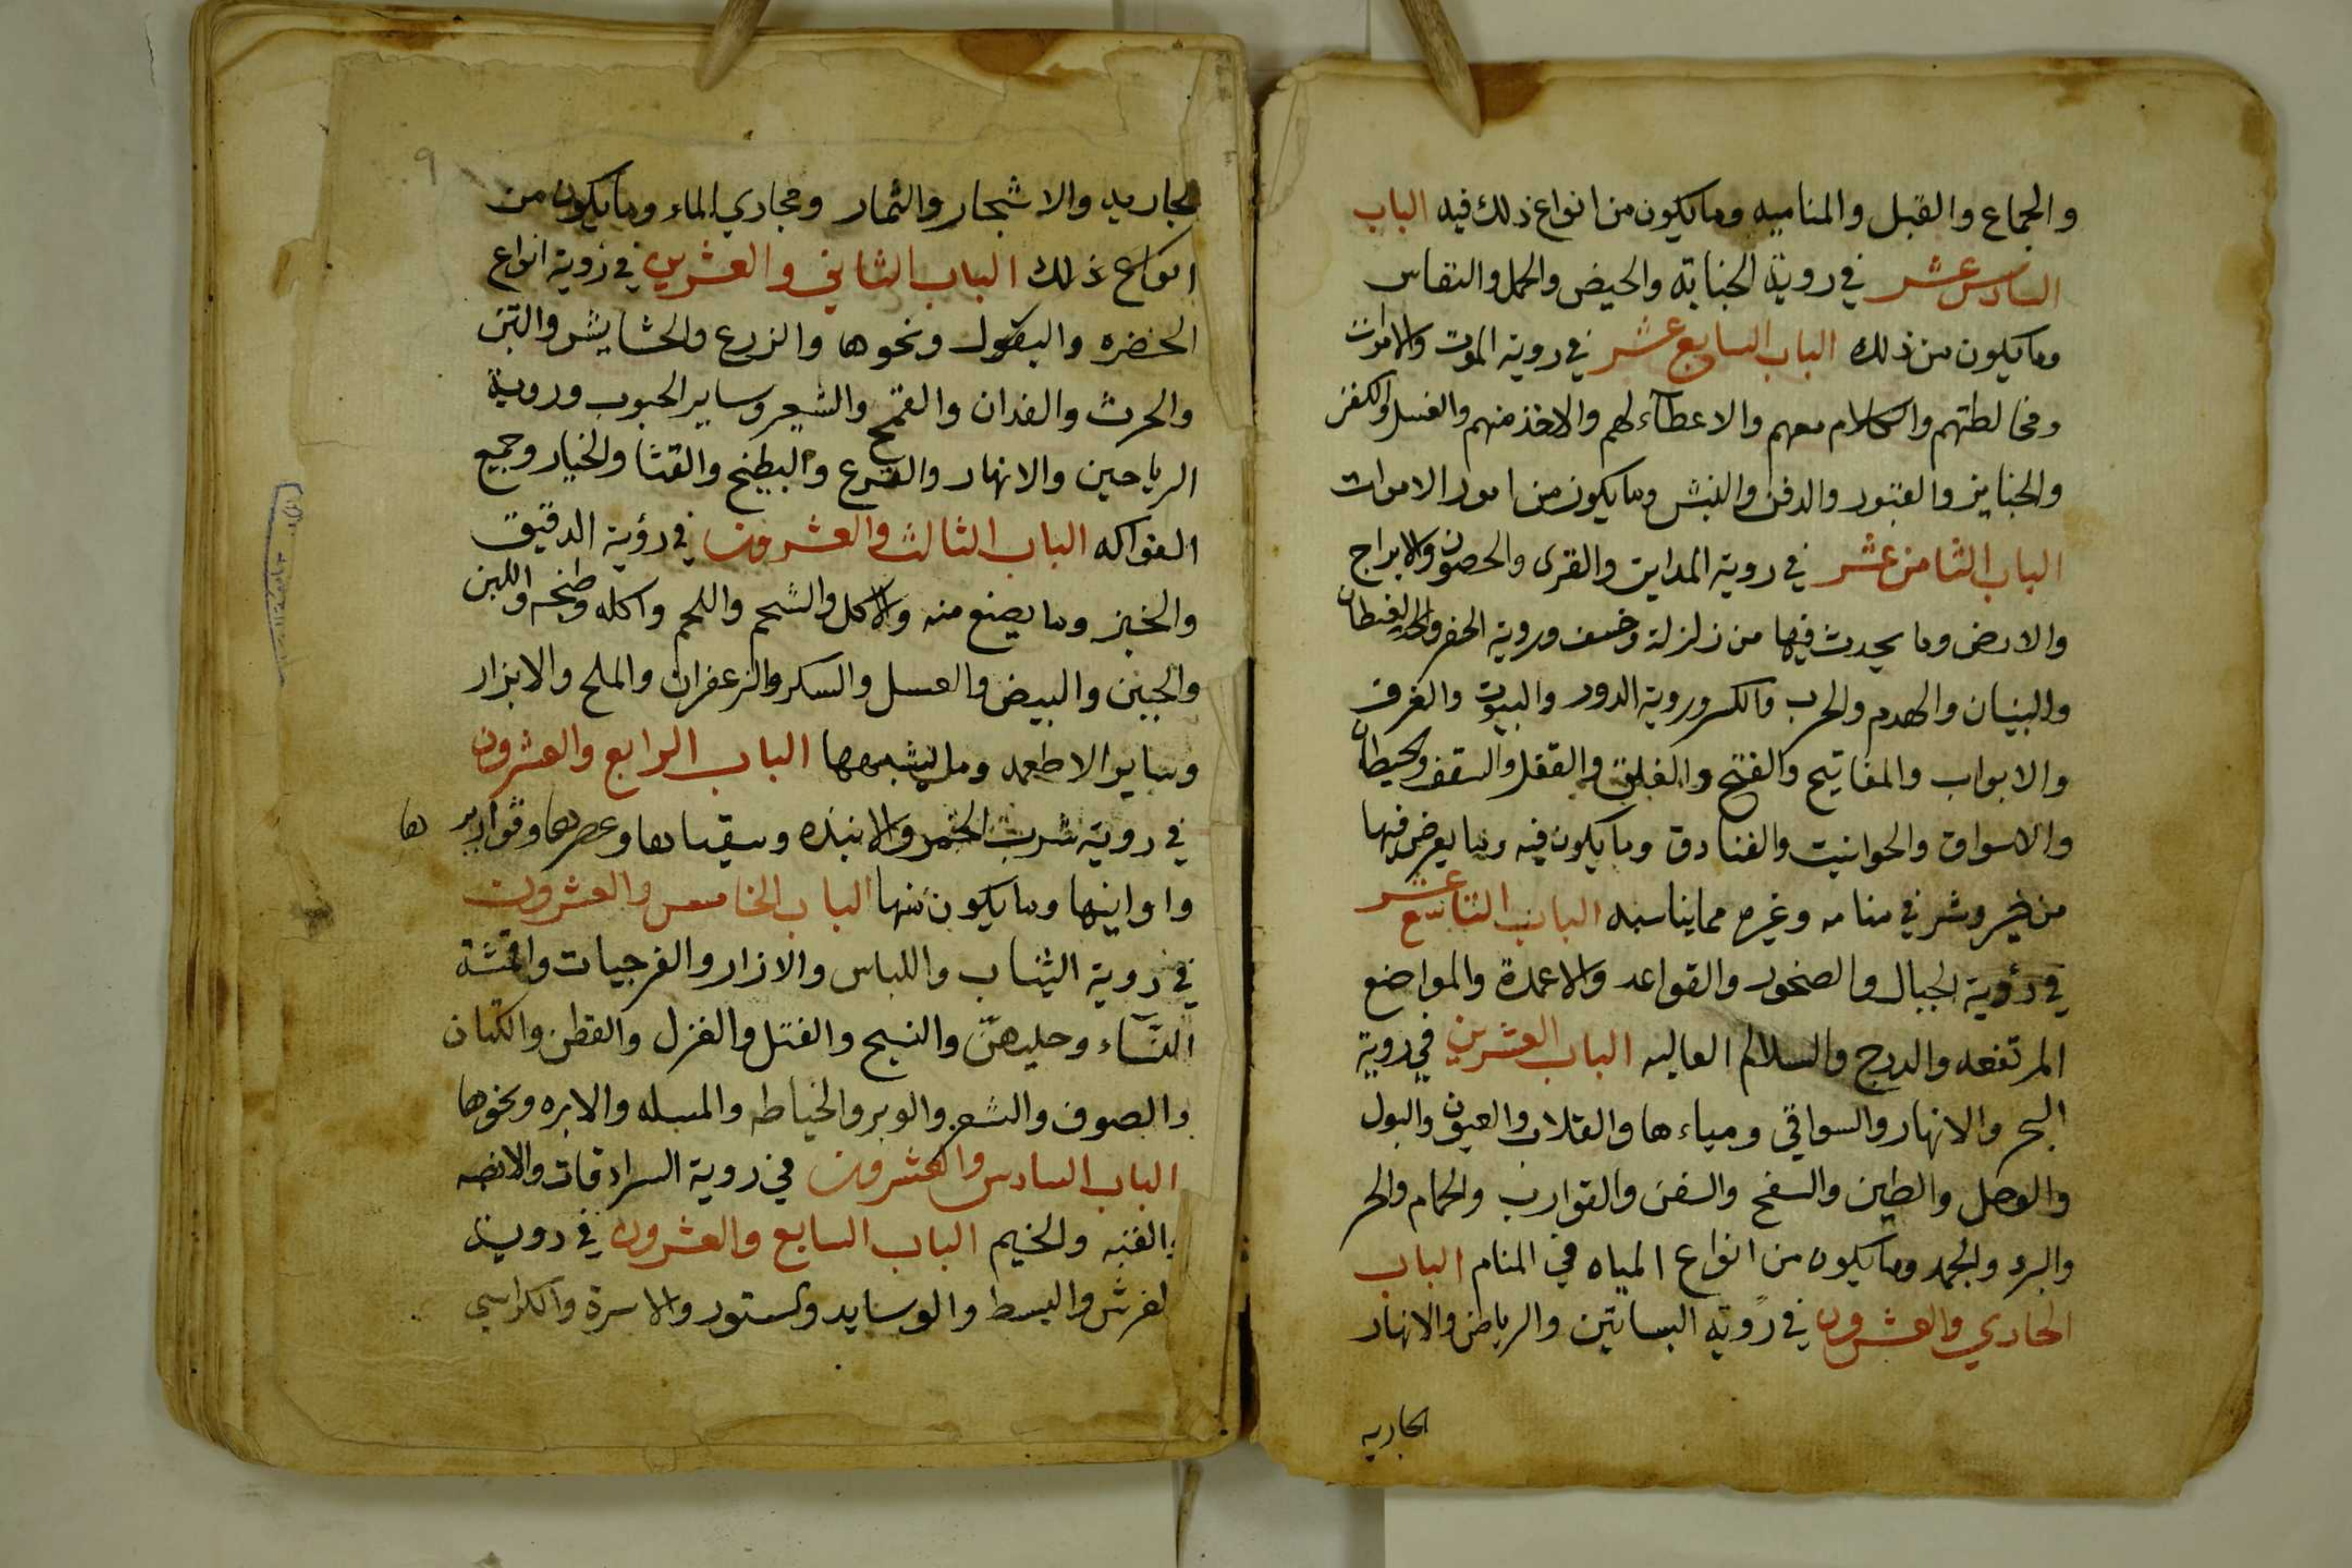 والجماع والقبل والمناميه وما يكون من انواع ذلك فيه الباب
السادس عشر في روية الجنابة والحيض والحمل والنفاس
وما يكون من ذلك الباب السابع عشر في روية الموت والاموات
ومخالطتهم والكلام معهم والاعطآء لهم والاخذ منهم والغسل والكفن
والجنايز والقبور والدفن والنبش وما يكون من امور الاموات
الباب الثامن عشر في روية المداين والقرى والحصون والابراج
والارض وما يحدث فيها من زلزلة وخسف وروية الحفر
والبنيان والهدم والحرب والكسر وروية الدور والبيوت والغرف
والابواب والمفاتيح والفتح والغلق والقفل والسقف والحيطان
والاسواق والحوانيت والفنادق وما يكون فيه وما يعرض فيها
من خير وشر في منامه وغيره مما يناسبه الباب التاسع عشر
في رؤية الجبال والصخور والقواعد والاعمدة والمواضع
المرتفعه والدرج والسلالم العاليه الباب العشرين في روية
البحر والانهار والسواقي ومياءها والقلات والعيون والبول
والوحل والطين والسفح والسفن والقوارب والحمام والحر
والبرد والجمد وما يكون من انواع المياه في المنام الباب
الحادي والعشرون في رؤية البساتين والرياض والانهار
الجاريه
الجاريه والاشجار والثمار ومجاري الماء وما يكون من
انواع ذلك الباب الثاني والعشرين في رؤية انواع
الخضره والبقول ونحوها والزرع والحشايش والتبن
والحرث والفدان والقمح والشعير وساير الحبوب وروية
الرياحين والانهار والقرع والبطيخ والقثا والخيار وجميع
الفواكه الباب الثالث والعشرون في رؤية الدقيق
والخبز وما يصنع منه والاكل والشحم واللحم واكله وطبخه واللبن
والجبن والبيض والعسل والسكر والزعفران والملح والابزار
وساير الاطعمه وما يشبهها الباب الرابع والعشرون
في روية شرب الخمر والانبذه وسقياها وعصرها وقواريرها
واوانيها وما يكون منها الباب الخامس والعشرون
في روية الثياب واللباس والازار والفرجيات واقمشة
النسآء وحليهنّ والنسيج والفتل والغزل والقطن والكتان
والصوف والشعر والوبر والخياطه والمسله والابره ونحوها
الباب السادس والعشرون في روية السرادقات
والقبه والخيم الباب السابع والعشرون في روية
الفرش والبسط والوسايد والستور والاسرة والكراسي